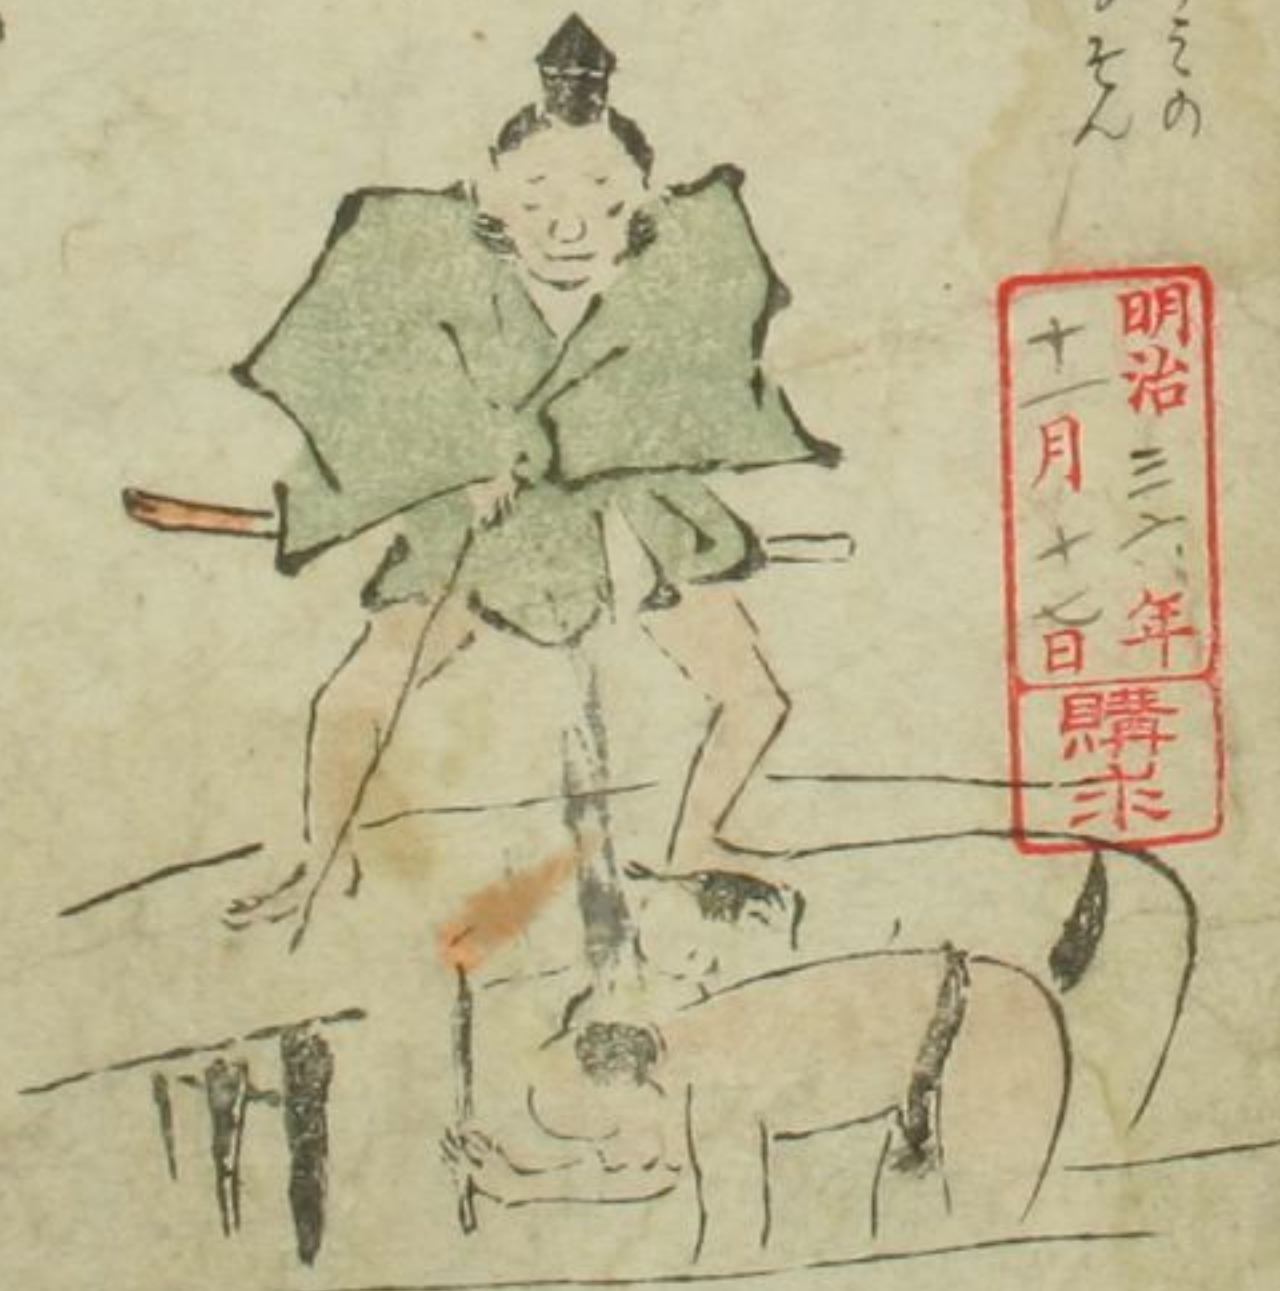 みの
そん
明治三六年
十一月十七日
購求